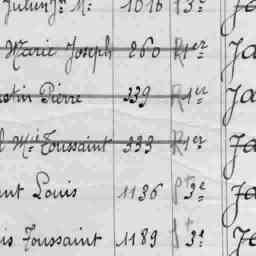 Julien Jn M. 1016 P 3e Ja
Marie Joseph 260 R 1er Ja
Pierre 239 R 1er Ja
l Mie Toussaint 333 R 1er Ja
Louis 1136 Pt 3e Ja
is Toussaint 1189 3e Ja